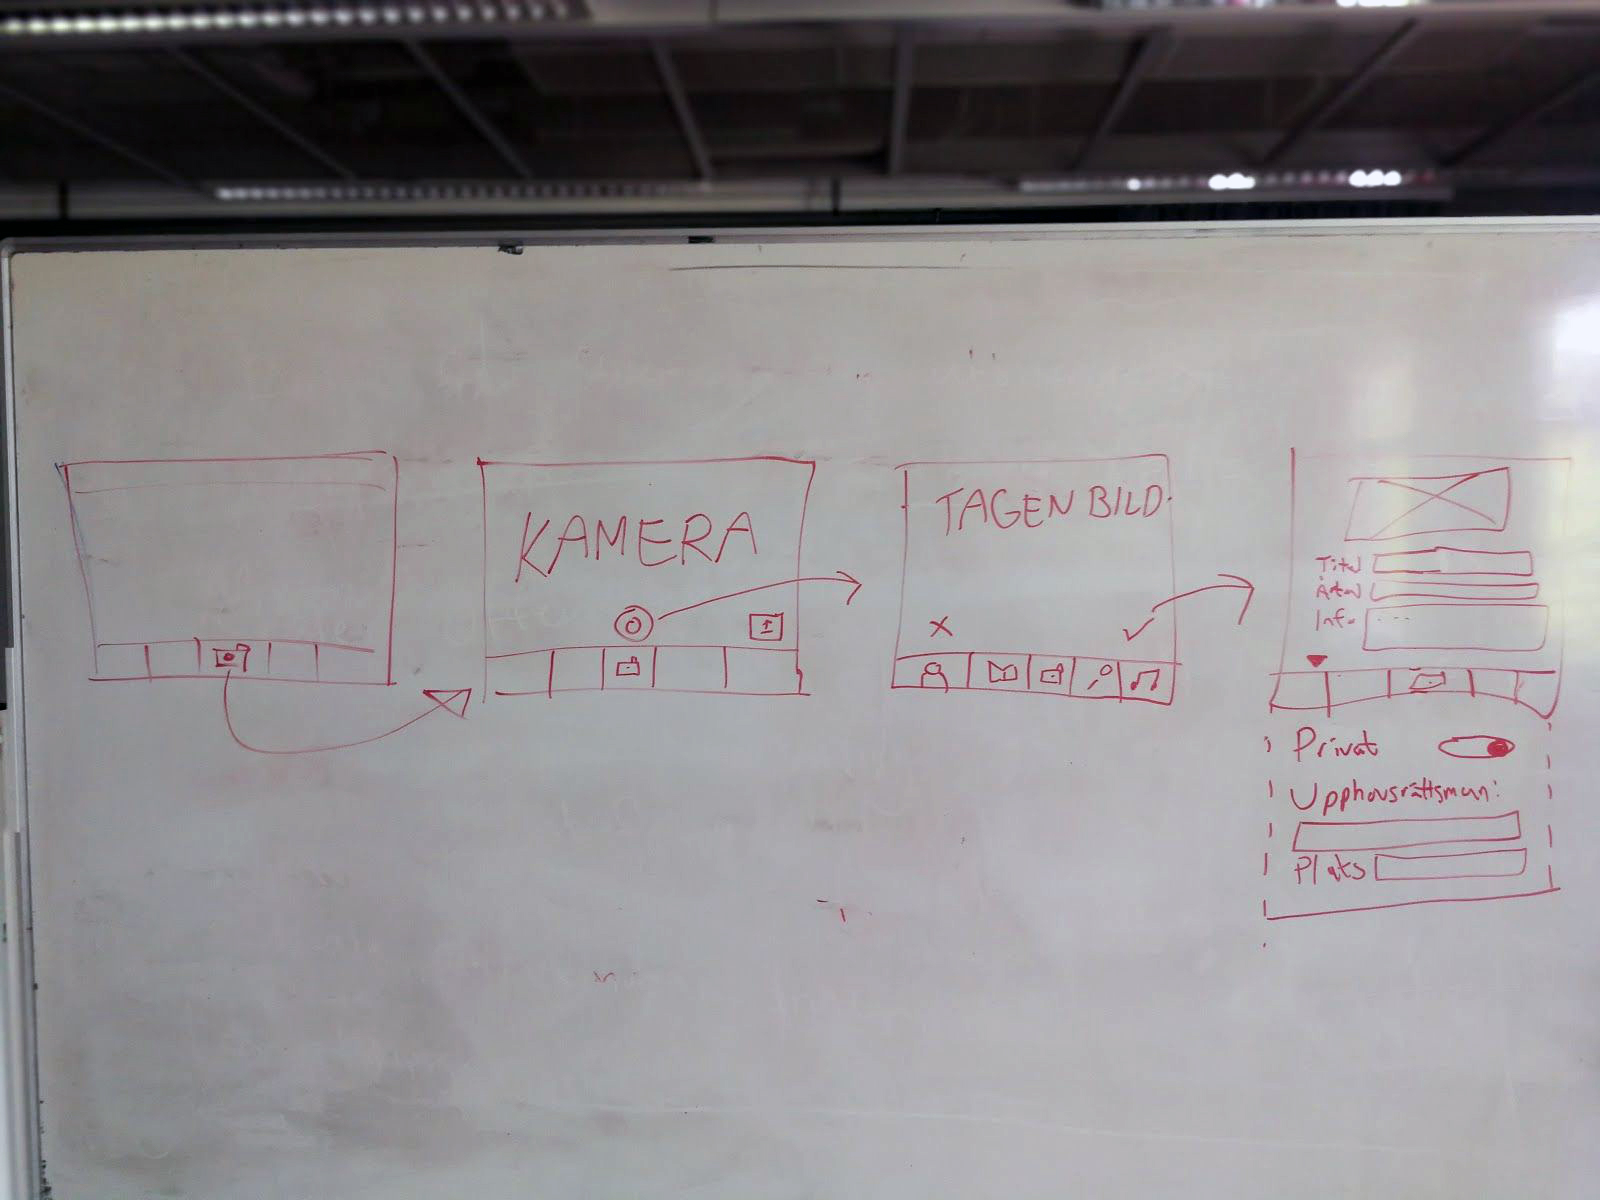 KAMERA
TAGEN BILD
Titel
Info
Privat
Upphovsrättsman:
Plats